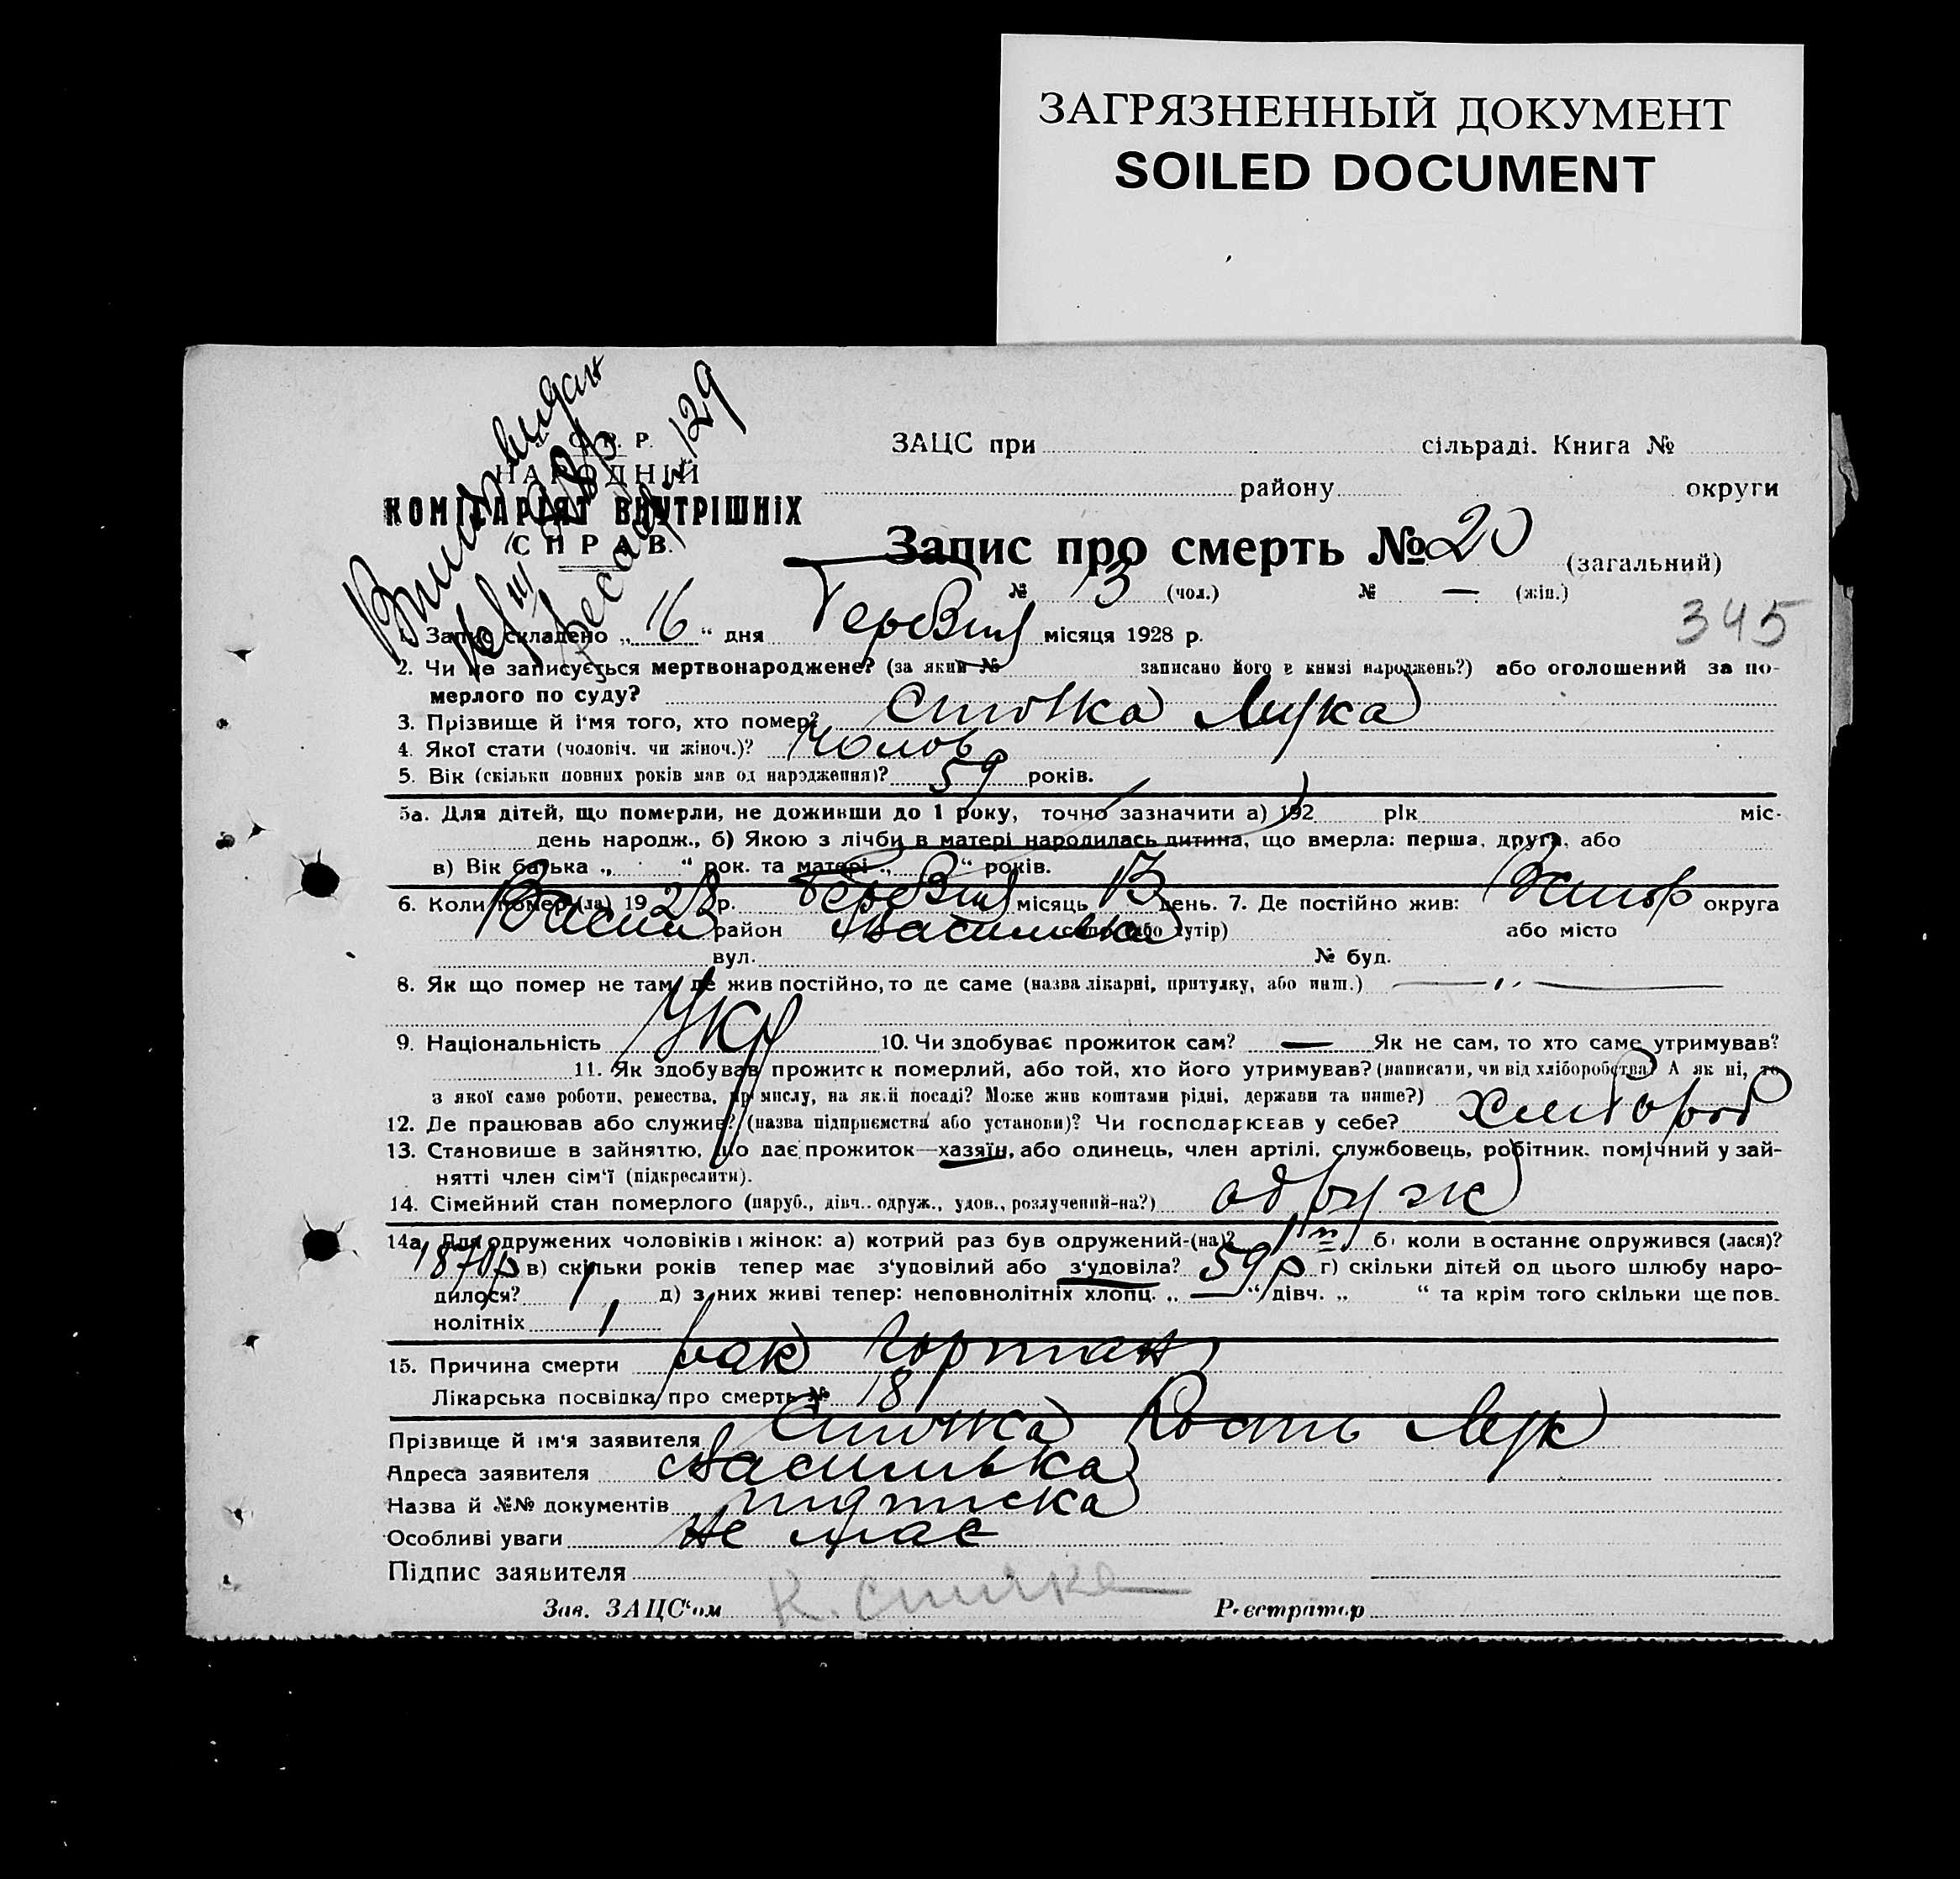 ЗАГРЯЗНЕННЫЙ ДОКУМЕНТ
SOILED DOCUMENT
НАРОДНІЙ
КОМІСАРІЯТ ВНУТРІШНІХ
СПРАВ.
129
ЗАЦС при сільраді. Книга №
району округи
Запис про смерть № 20 (загальний)
№ 13 (чол.) № — (жін.)
345
1. Запис складено „ 16 “ дня Червня місяця 1928 р.
2. Чи не записується мертвонароджене? (за яким № записано його в книзі народжень?) або оголошений за по-
мерлого по суду?
3. Прізвище й і'мя того, хто помер? Спичка Лука
4. Якої стати (чоловіч. чи жіноч.)? Чолов
5. Вік (скільки повних років мав од народження)? 59 років.
5а. Для дітей, що померли, не доживши до 1 року, точно зазначити а) 192 рік міс-
день народж., б) Якою з лічби в матері народилась дитина, що вмерла: перша, друга, або
в) Вік батька „ “ рок. та матері „ “ років.
6. Коли помер (ла) 1928 р. Червня місяць 13 день. 7. Де постійно жив: округа
район Василівка село (або хутір) або місто
вул. № буд.
8. Як що помер не там, де жив постійно, то де саме (назва лікарні, притулку, або инш.) — „ —
9. Національність Укр 10. Чи здобуває прожиток сам? — Як не сам, то хто саме утримував?
11. Як здобував прожиток померлий, або той, хто його утримував? (написати, чи від хліборобства? А як ні, то
з якої саме роботи, ремества, промислу, на якій посаді? Може жив коштами рідні, держави та инше?)
12. Де працював або служив? (назва підприємства або установи)? Чи господарював у себе? Хлібороб
13. Становище в зайняттю, що дає прожиток—хазяїн, або одинець, член артілі, службовець, робітник. помічний у зай-
нятті член сім'ї (підкреслити).
14. Сімейний стан померлого (паруб., дівч.. одруж., удов., розлучений-на?) одруж
14а. Для одружених чоловіків і жінок: а) котрий раз був одружений-(на)? 1й б) коли востаннє одружився (лася)?
187 р в) скільки років тепер має з'удовілий або з'удовіла? 59 р г) скільки дітей од цього шлюбу наро-
дилося? 1 д) з них живі тепер: неповнолітніх хлопц. „ — “ дівч. „ “ та крім того скільки ще пов-
нолітніх 1
15. Причина смерти рак гортані
Лікарська посвідка про смерть № 18
Прізвище й ім'я заявителя Спичка Кость Лук
Адреса заявителя Василівка
Назва й №№ документів підписка
Особливі уваги не має
Підпис заявителя К. Спичка
Зав. ЗАЦС'ом Реєстратор